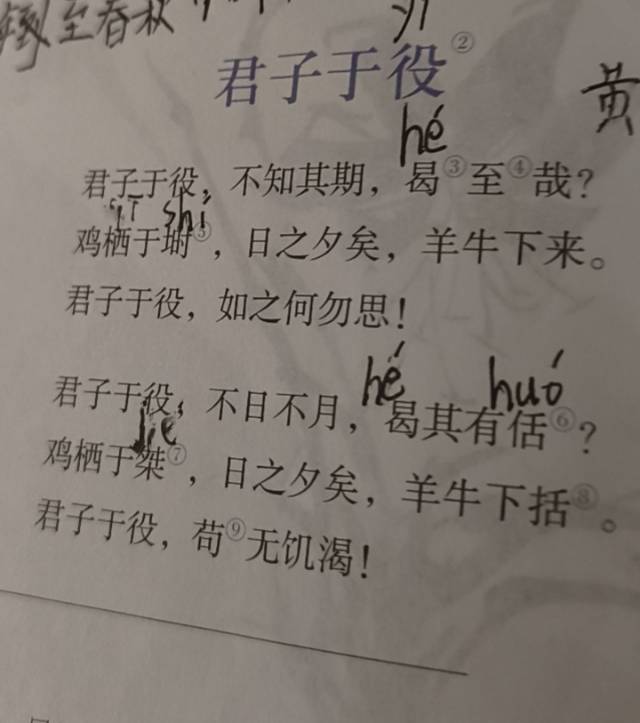 至春秋
yì
君子于役②
黄
hé
君子于役，不知其期，曷③至哉④？
qī shí
鸡栖于埘⑤，日之夕矣，羊牛下来。
君子于役，如之何勿思！
hé huó
君子于役，不日不月，曷其有佸⑥？
jié
鸡栖于桀⑦，日之夕矣，羊牛下括⑧。
君子于役，苟⑨无饥渴！